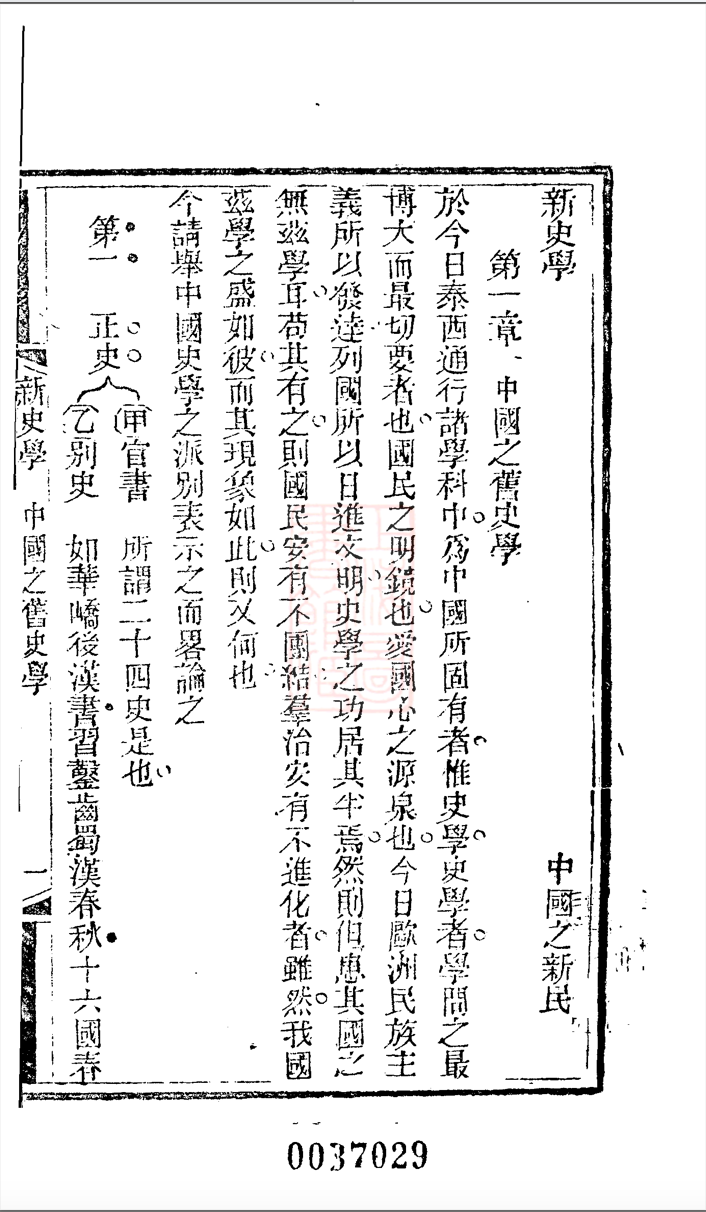 新史學　中國之新民
第一章、中國之舊史學
於今日泰西通行諸學科中。爲中國所固有者。惟史學。史學者。學問之最
博大而最切要者也。國民之明鏡也。愛國心之源泉也。今日歐洲民族主
義所以發達列國所以日進文明。史學之功居其半焉。然則但患其國之
無茲學耳。苟其有之。則國民安有不團結羣治安有不進化者。雖然。我國
茲學之盛如彼。而其現象如此。則又何也。
今請舉中國史學之派別表示之而畧論之
第一　正史
(甲)官書　所謂二十四史是也。
(乙)別史　如華嶠後漢書習鑿齒蜀漢春秋十六國春
新史學　中國之舊史學　一
0037029